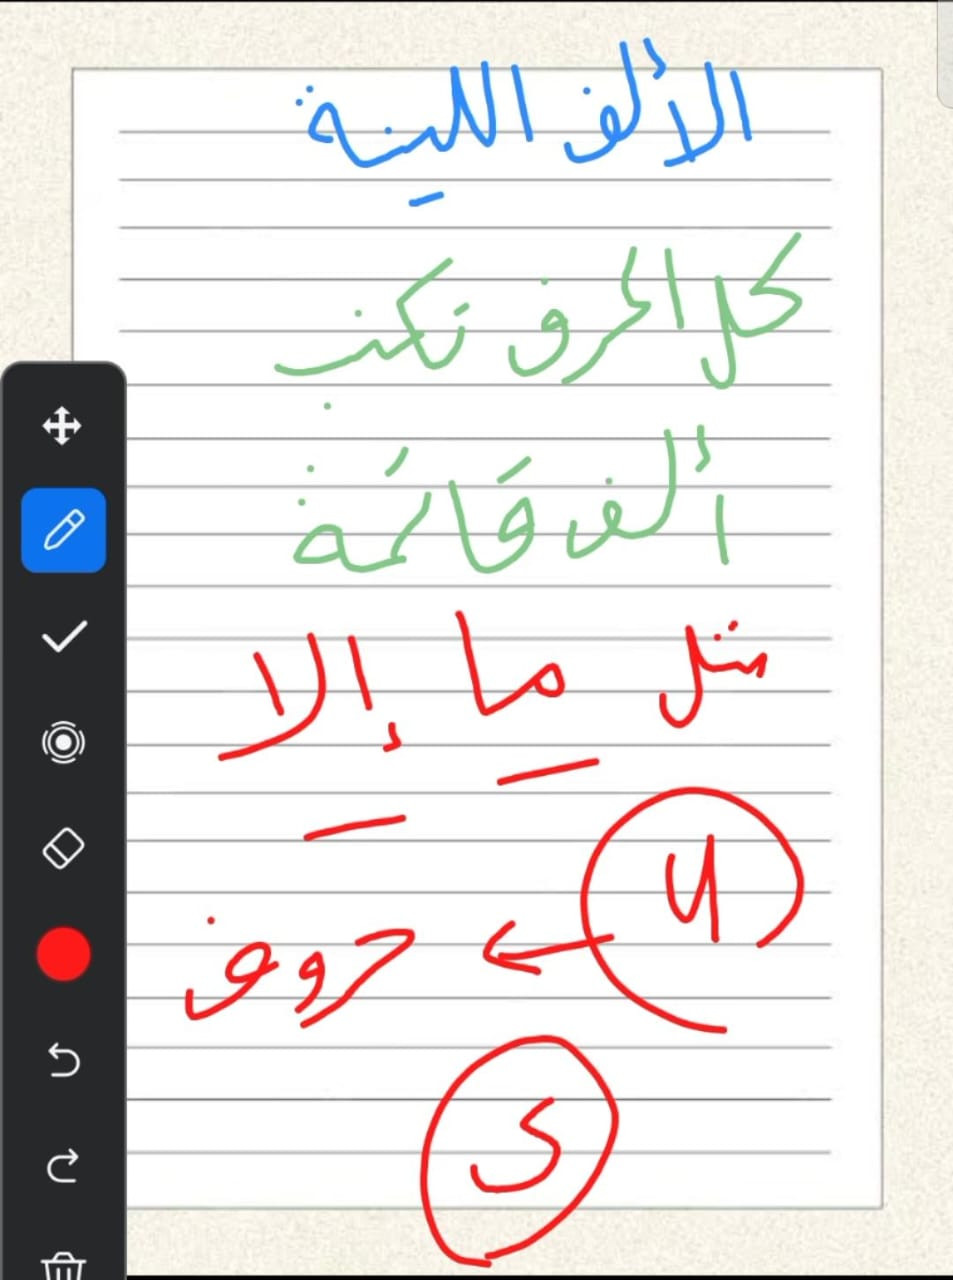 الألف اللينة
كل الحرف تكتب
ألف قائمة
مثل ما إلا
4 ← حروف
ى